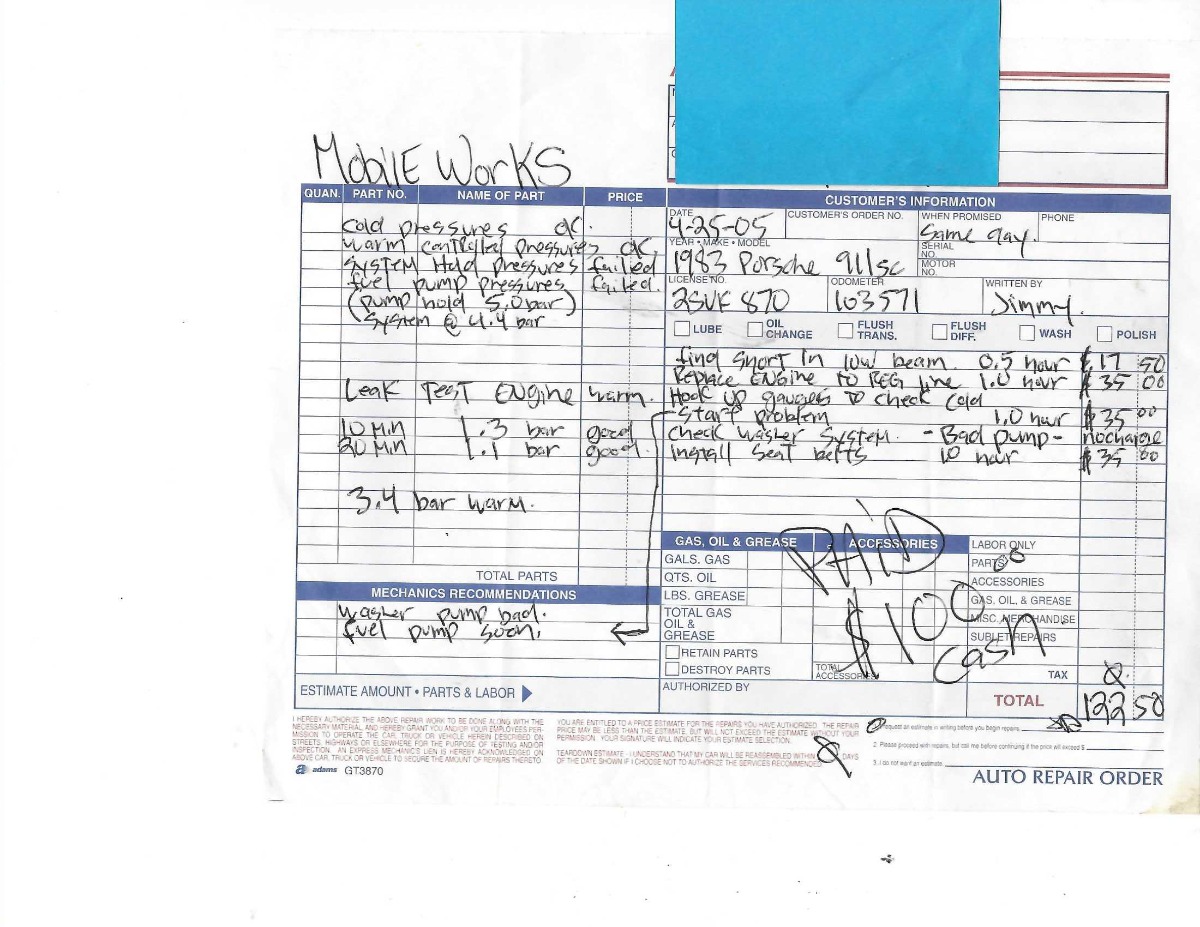 MobilE WorKS
QUAN. PART NO. NAME OF PART PRICE
Cold pressures ok.
warm controlled pressures ok
SYSTEM Hold pressures failed
fuel pump pressures failed.
(pump hold 5.0 bar)
(System @ 4.4 bar
Leak TEST ENgine warm.
10 Min 1.3 bar good
20 Min 1.1 bar good
3.4 bar warm.
TOTAL PARTS
MECHANICS RECOMMENDATIONS
washer pump bad.
fuel pump soon.
ESTIMATE AMOUNT • PARTS & LABOR
CUSTOMER'S INFORMATION
DATE CUSTOMER'S ORDER NO. WHEN PROMISED PHONE
4-25-05 Same day.
YEAR • MAKE • MODEL SERIAL NO.
1983 Porsche 911sc MOTOR NO.
LICENSE NO. ODOMETER WRITTEN BY
2SVK 870 103571 Jimmy.
LUBE OIL CHANGE FLUSH TRANS. FLUSH DIFF. WASH POLISH
find short In low beam 0.5 hour $ 17 50
Replace ENgine TO REG line 1.0 hour $ 35 00
Hook up gauages TO check cold
start problem 1.0 hour $ 35 00
check washer system. - Bad pump - nocharge
install seat belts 1.0 hour $ 35 00
GAS, OIL & GREASE ACCESSORIES LABOR ONLY
GALS. GAS PARTS
QTS. OIL ACCESSORIES
LBS. GREASE GAS, OIL & GREASE
TOTAL GAS OIL & GREASE MISC. MERCHANDISE
SUBLET REPAIRS
PAiD
$100
cash
RETAIN PARTS
DESTROY PARTS TOTAL ACCESSORIES TAX
AUTHORIZED BY TOTAL 122 50
I HEREBY AUTHORIZE THE ABOVE REPAIR WORK TO BE DONE ALONG WITH THE
NECESSARY MATERIAL AND HEREBY GRANT YOU AND/OR YOUR EMPLOYEES PER-
MISSION TO OPERATE THE CAR, TRUCK OR VEHICLE HEREIN DESCRIBED ON
STREETS, HIGHWAYS OR ELSEWHERE FOR THE PURPOSE OF TESTING AND/OR
INSPECTION. AN EXPRESS MECHANICS LIEN IS HEREBY ACKNOWLEDGED ON
ABOVE CAR, TRUCK OR VEHICLE TO SECURE THE AMOUNT OF REPAIRS THERETO.
YOU ARE ENTITLED TO A PRICE ESTIMATE FOR THE REPAIRS YOU HAVE AUTHORIZED. THE REPAIR
PRICE MAY BE LESS THAN THE ESTIMATE, BUT WILL NOT EXCEED THE ESTIMATE WITHOUT YOUR
PERMISSION. YOUR SIGNATURE WILL INDICATE YOUR ESTIMATE SELECTION.
TEARDOWN ESTIMATE - I UNDERSTAND THAT MY CAR WILL BE REASSEMBLED WITHIN DAYS
OF THE DATE SHOWN IF I CHOOSE NOT TO AUTHORIZE THE SERVICES RECOMMENDED.
request an estimate in writing before you begin repairs.
2. Please proceed with repairs, but call me before continuing if the price will exceed $
3. I do not want an estimate.
adams GT3870
AUTO REPAIR ORDER